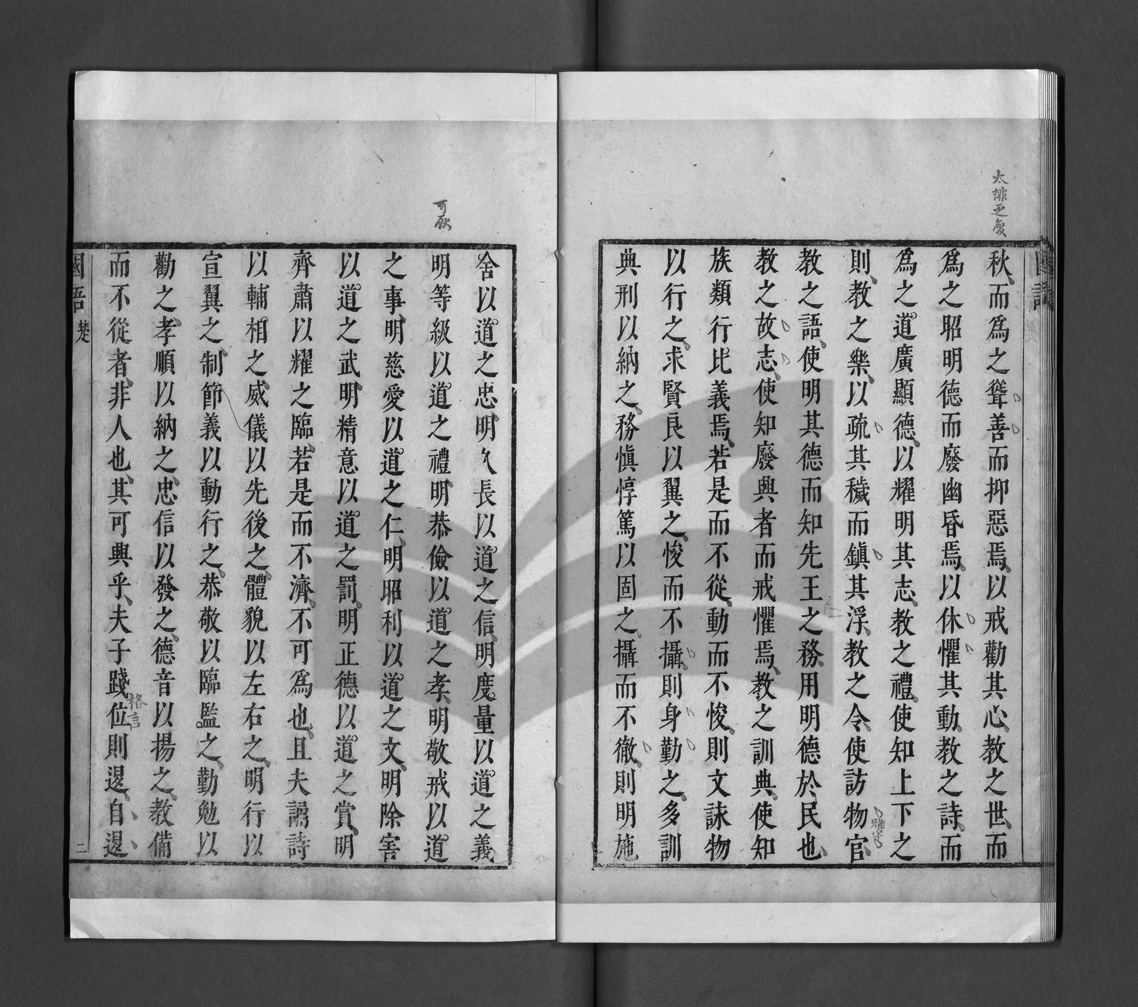 太排更複
國語
秋而爲之聳善而抑惡焉以戒勸其心教之世而
爲之昭明德而廢幽昏焉以休懼其動教之詩而
爲之道廣顯德以耀明其志教之禮使知上下之
則教之樂以疏其穢而鎮其浮教之令使訪物官
教之語使明其德而知先王之務用明德於民也
教之故志使知廢興者而戒懼焉教之訓典使知
族類行比義焉若是而不從動而不悛則文詠物
以行之求賢良以翼之悛而不攝則身勤之多訓
典刑以納之務愼惇篤以固之攝而不徹則明施
舍以道之忠明久長以道之信明度量以道之義
明等級以道之禮明恭儉以道之孝明敬戒以道
之事明慈愛以道之仁明昭利以道之文明除害
以道之武明精意以道之罰明正德以道之賞明
齊肅以耀之臨若是而不濟不可爲也且夫誦詩
以輔相之威儀以先後之體貌以左右之明行以
宣翼之制節義以動行之恭敬以臨監之勤勉以
勸之孝順以納之忠信以發之德音以揚之教備
而不從者非人也其可興乎夫子踐位則退自退
格言
國語 楚 三